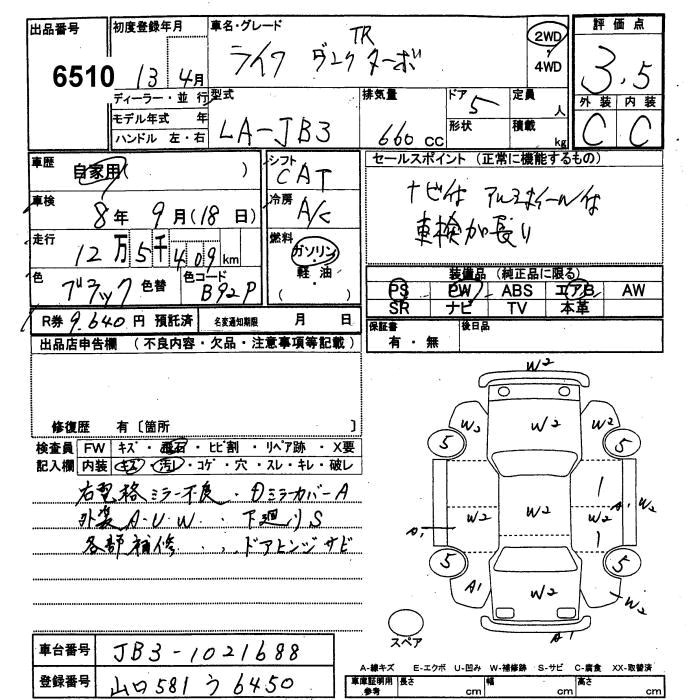 出品番号
6510
初度登録年月
13年 4月
車名・グレード
TR
ライフ ダンク ターボ
2WD
・
4WD
評価点
3.5
外装 内装
C C
ディーラー・並行
モデル年式 年
ハンドル 左・右
型式
LA-JB3
排気量
660 cc
ドア 5
形状
定員
人
積載
kg
車歴
自家用( )
車検
8年 9月(18日)
走行
12万5千409km
色
ブラック 色替
色コード
B92P
シフト
CAT
冷房
A/C
燃料
ガソリン
・
軽油
( )
セールスポイント (正常に機能するもの)
ナビ付 アルミホイール付
車検が長り
装備品 (純正品に限る)
PS PW ABS エアB AW
SR ナビ TV 本革
R券 9.640円 預託済 名変通知期限 月 日
保証書
有・無
後日品
出品店申告欄 (不良内容・欠品・注意事項等記載)
修復歴 有〔箇所 〕
検査員 FW キズ・飛石・ヒビ割・リペア跡・X要
記入欄 内装 キズ・汚レ・コゲ・穴・スレ・キレ・破レ
右電格ミラー不良・Dミラーカバー A
外装 A・U・W・下廻りS
各部補修・・ドアヒンジサビ
W2
W2 W2 W2
5 5
A1 W2 W2 1 W2 1 A1 W2
5 5
A1 W2 W2
A1
スペア
車台番号 JB3-1021688
登録番号 山口581う6450
A-線キズ E-エクボ U-凹み W-補修跡 S-サビ C-腐食 XX-取替済
車庫証明用
参考
長さ cm 幅 cm 高さ cm